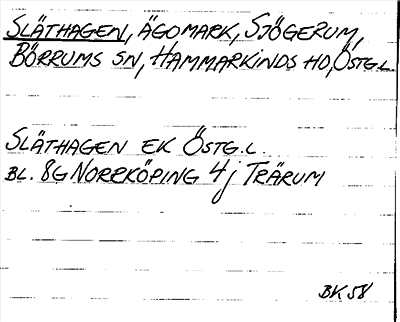 SLÄTHAGEN, ÄGOMARK, SJÖGERUM,
BÖRRUMS SN, HAMMARKINDS HD, ÖSTG.L.
SLÄTHAGEN EK ÖSTG.L.
BL. 8G NORRKÖPING 4j TRÄRUM
BK 58